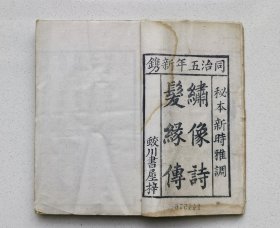 同治五年新鐫
秘本 新時雅調
繡像詩
髮緣傳
蛟川書屋梓